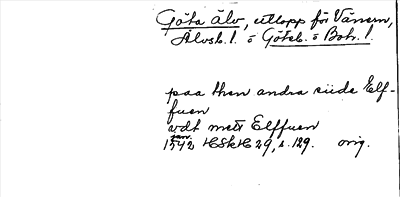 Göta älv, utlopp för Vänern,
Älvsb. l. o Göteb. o Boh. l.
paa then andra siide Elf-
fuen
vdt mett Elffuen
1542 HSkH 29, s. 129. orig.